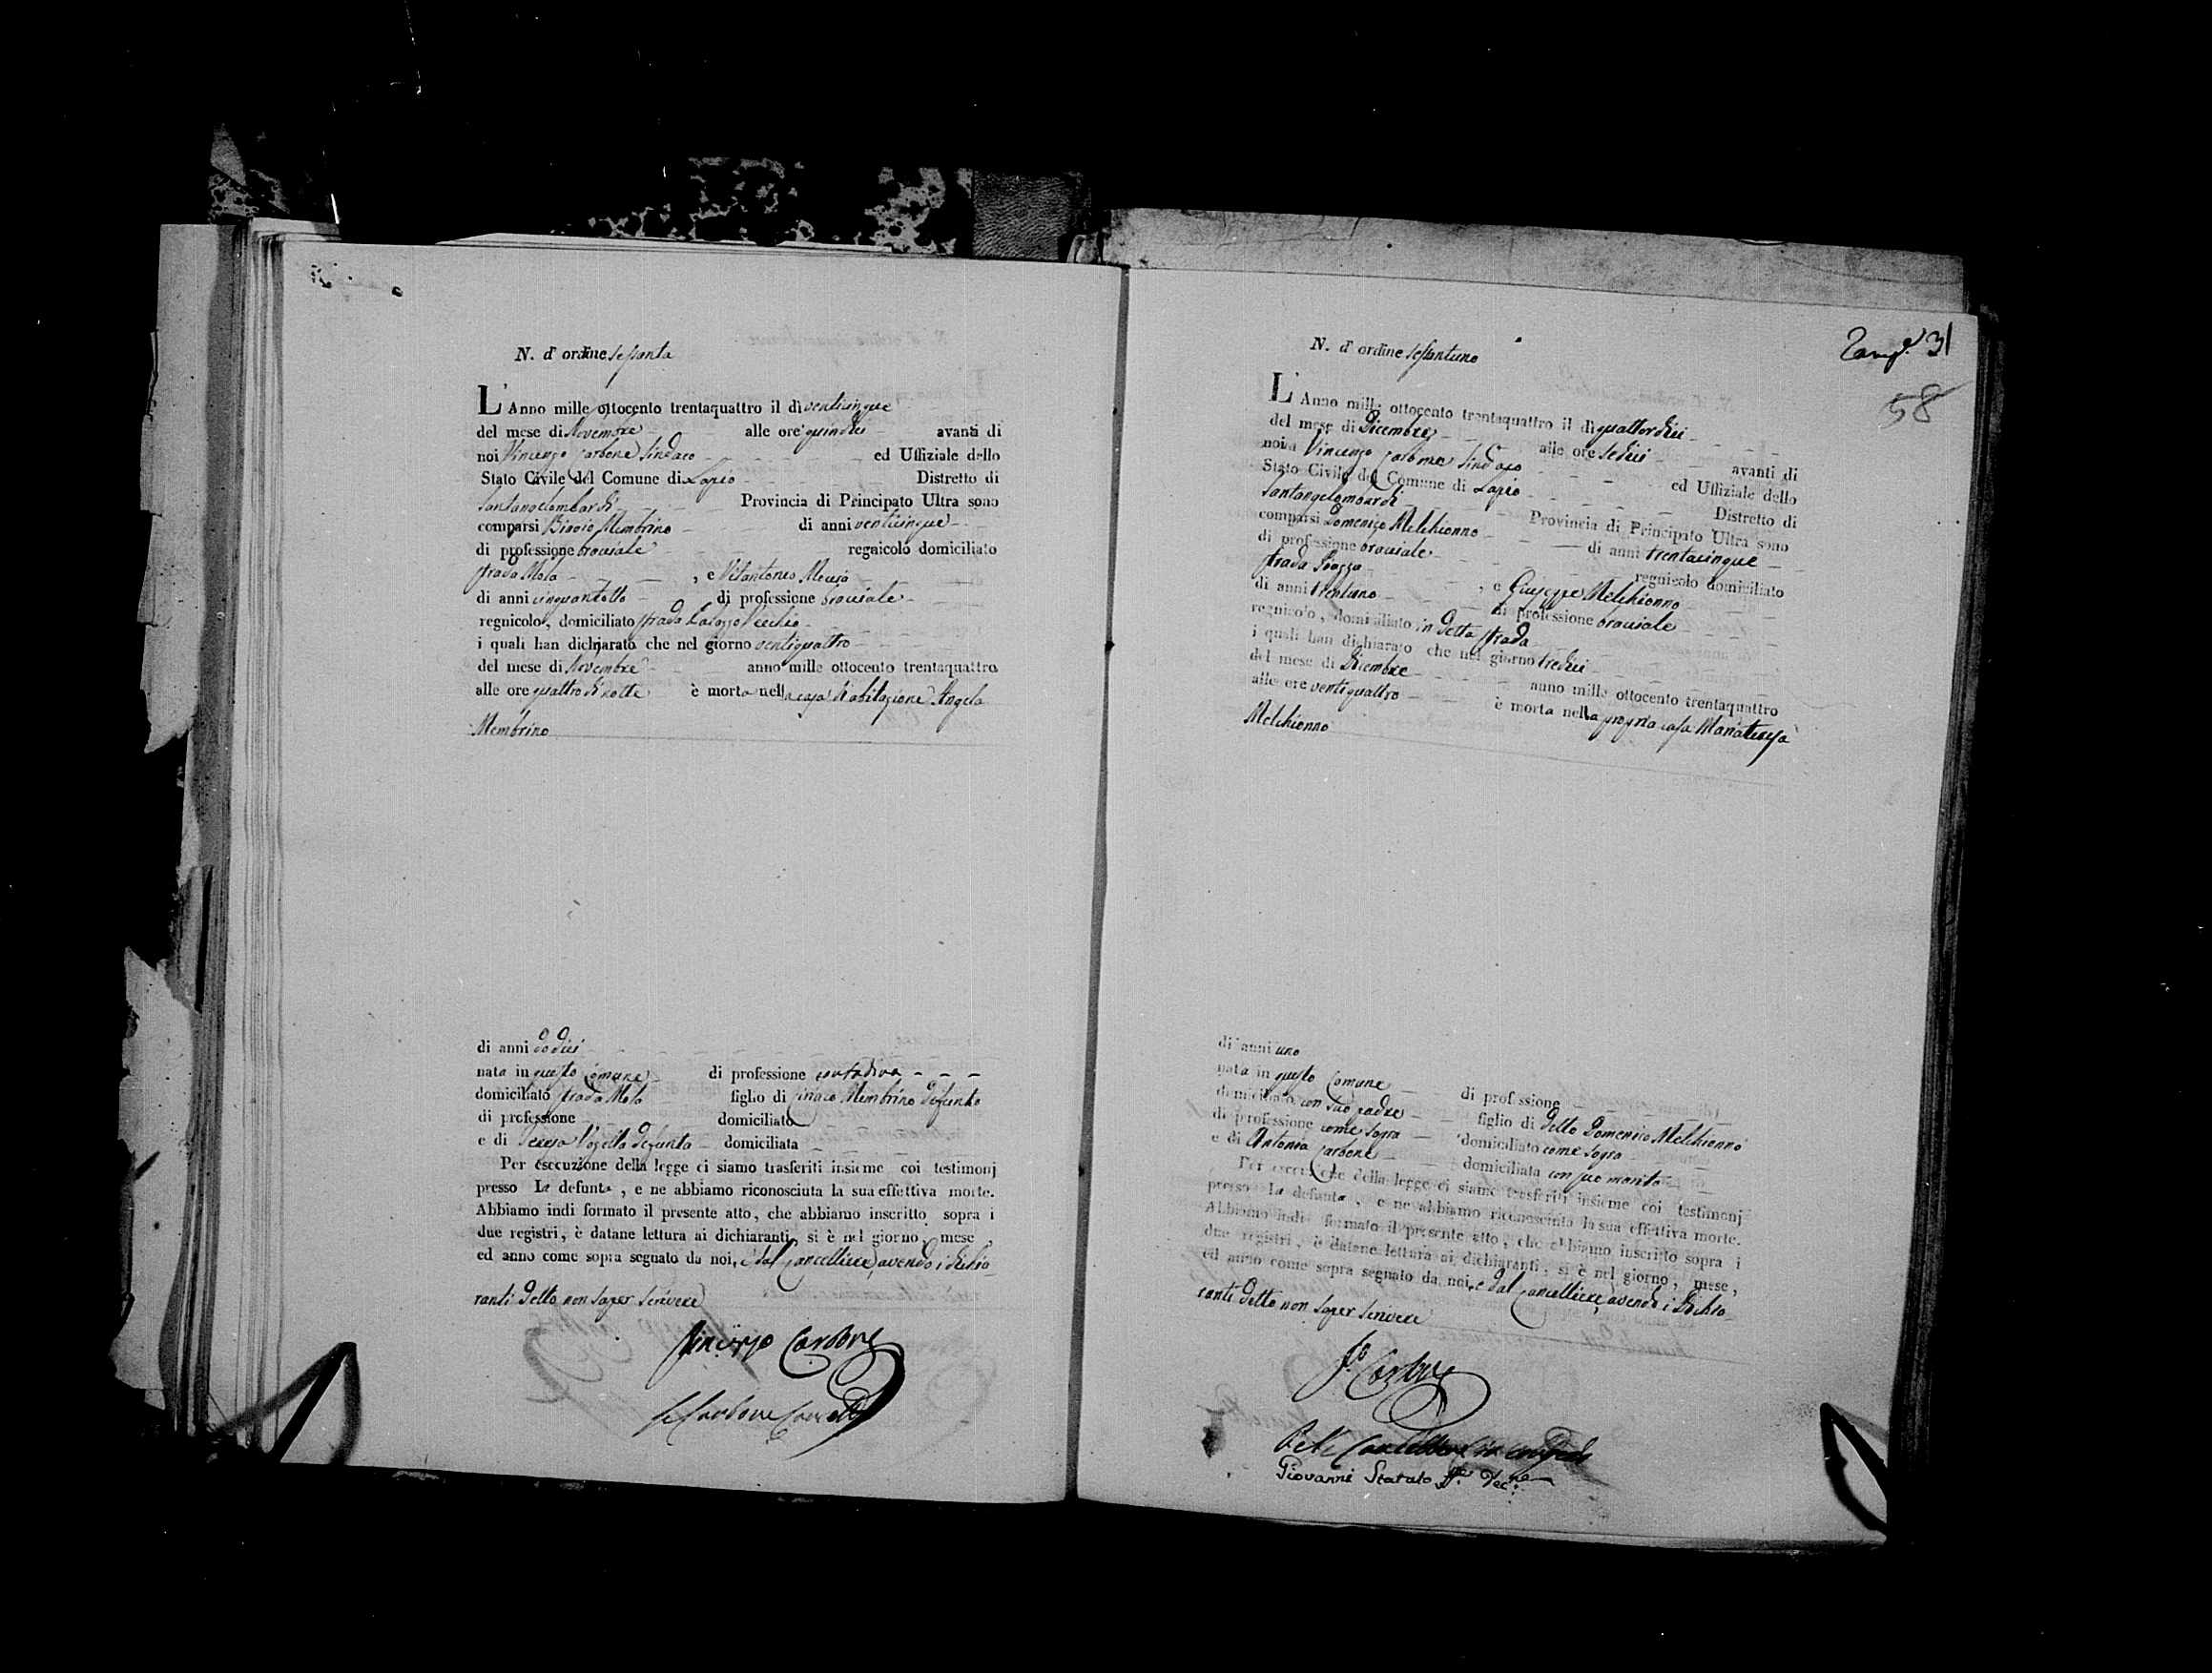 N. d'ordine sessanta
L'Anno mille ottocento trentaquattro il dì venticinque
del mese di Novembre alle ore quindici avanti di
noi Vincenzo Carbone Sindaco ed Uffiziale dello
Stato Civile del Comune di Lapio Distretto di
Santangelombardi Provincia di Principato Ultra sono
comparsi Biagio Membrino di anni venticinque
di professione bracciale regnicolo domiciliato
strada Mola , e Vitantonio
di anni cinquantotto di professione bracciale
regnicolo, domiciliato strada Palazzo Vecchio
i quali han dichiarato che nel giorno ventiquattro
del mese di Novembre anno mille ottocento trentaquattro
alle ore quattro di notte è morta nella casa d'abitazione Angela
Membrino
di anni dodici
nata in questo Comune di professione contadina
domiciliato strada Mola figlio di Ciriaco Membrino defunto
di professione domiciliato
e di defunta domiciliata
Per esecuzione della legge ci siamo trasferiti insieme coi testimonj
presso La defunta, e ne abbiamo riconosciuta la sua effettiva morte.
Abbiamo indi formato il presente atto, che abbiamo inscritto sopra i
due registri, è datane lettura ai dichiaranti, si è nel giorno, mese,
ed anno come sopra segnato da noi, e dal Cancelliere, avendo i dichia-
ranti detto non saper scrivere
Vincenzo Carbone
Carbone
31
58
N. d'ordine sessantuno
L'Anno mille ottocento trentaquattro il dì quattordici
del mese di Dicembre alle ore sedici avanti di
noi Vincenzo Carbone Sindaco ed Uffiziale dello
Stato Civile del Comune di Lapio Distretto di
Santangelombardi Provincia di Principato Ultra sono
comparsi Domenico Melchionno di anni trentacinque
di professione bracciale regnicolo domiciliato
strada Piazza , e Giuseppe Melchionno
di anni trentuno di professione bracciale
regnicolo, domiciliato in detta strada
i quali han dichiarato che nel giorno tredici
del mese di Dicembre anno mille ottocento trentaquattro
alle ore ventiquattro è morta nella propria casa Mariateresa
Melchionno
di anni uno
nata in questo Comune di professione
domiciliato con suo padre figlio di detto Domenico Melchionno
di professione come sopra domiciliato come sopra
e di Antonia Carbone domiciliata con suo marito
Per esecuzione della legge ci siamo trasferiti insieme coi testimonj
presso la defunta, e ne abbiamo riconosciuta la sua effettiva morte.
Abbiamo indi formato il presente atto, che abbiamo inscritto sopra i
due registri, è datane lettura ai dichiaranti, si è nel giorno, mese,
ed anno come sopra segnato da noi, e dal Cancelliere, avendo i dichia-
ranti detto non saper scrivere
Carbone
Giovanni